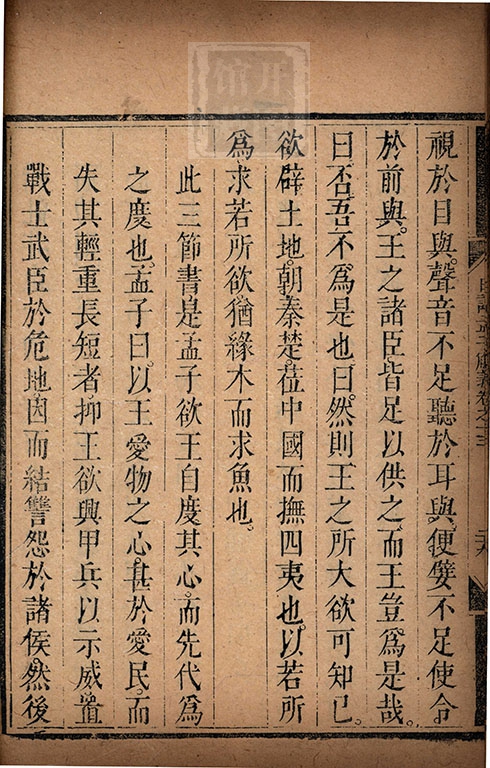 視於目與聲音不足聽於耳與便嬖不足使令
於前與王之諸臣皆足以供之而王豈爲是哉
曰否吾不爲是也曰然則王之所大欲可知已
欲辟土地朝秦楚莅中國而撫四夷也以若所
爲求若所欲猶緣木而求魚也
此三節書是孟子欲王自度其心而先代爲
之度也孟子曰以王愛物之心甚於愛民而
失其輕重長短者抑王欲興甲兵以示威置
戰士武臣於危地因而結讐怨於諸侯然後